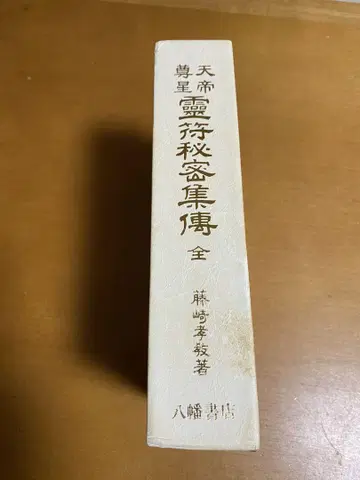 天帝
尊星
靈符秘密集傳
全
藤崎孝敎著
八幡書店